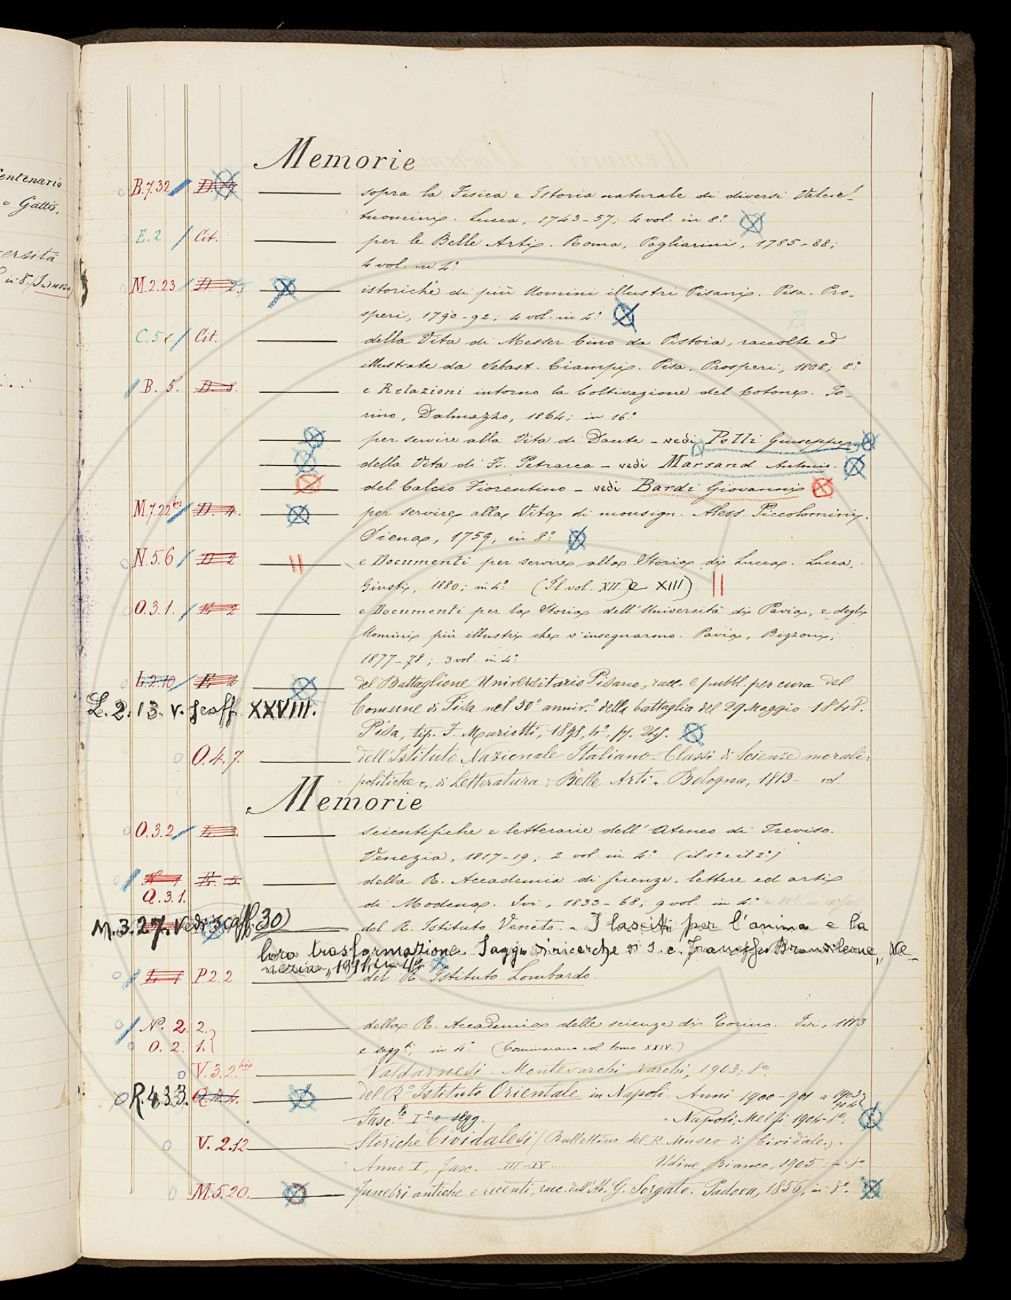 entenario
e Gatti,
ersità
in 8°,
Memorie
B.7.32 sopra la Fisica e Istoria naturale di diversi Valen-
tuomini. Lucca, 1743-57; 4 vol. in 8°
E.2 Cit. per le Belle Arti. Roma, Pagliarini, 1785-88;
4 vol. in 4°
M.2.23 D 2 istoriche di più Uomini illustri Pisani. Pisa. Pro-
speri, 1790-92; 4 vol. in 4°
C.5 Cit. della Vita di Messer Cino da Pistoia, raccolte ed
illustrate da Sebast. Ciampi. Pisa, Prosperi, 1808; 8°
B. 5. e Relazioni intorno la Coltivazione del Cotone. To-
rino, Dalmazzo, 1864; in 16°
per servire alla Vita di Dante - vedi Pelli Giuseppe
della Vita di Fr. Petrarca - vedi Marsand Antonio.
del Calcio Fiorentino - vedi Bardi Giovanni
M.7.22 bis D. 4. per servire alla Vita di monsign. Aless. Piccolomini.
Siena, 1759, in 8°
N.5.6 D 2 e Documenti per servire alla Storia di Lucca. Lucca,
Giusti, 1880; in 4° (Il vol. XII e XIII)
O.3.1. E 2 e Documenti per la Storia dell'Università di Pavia, e degli
Uomini più illustri che v'insegnarono. Pavia, Bizzoni,
1877-78; 3 vol. in 4°
L.2.10 del Battaglione Universitario Pisano, racc. e pubbl. per cura del
L. 2. 13. v. scaff. XXVIII. Comune di Pisa nel 50° anniv.° della battaglia del 29 Maggio 1848.
Pisa, tip. F. Mariotti, 1898, 4°,
O.4.7. dell'Istituto Nazionale Italiano. Classi di Scienze morali,
politiche e di Letteratura; Belle Arti. Bologna, 1813- vol.
Memorie
O.3.2 E. 3. scientifiche e letterarie dell'Ateneo di Treviso.
Venezia, 1817-19; 2 vol. in 4° (il 1° e il 2°)
della R. Accademia di scienze, lettere ed arti
Q.3.1. di Modena. Ivi, 1833-68; 9 vol. in 4°
M.3.27. Vedi Scaff. 30 del R. Istituto Veneto. - I lasciti per l'anima e la
loro trasformazione. Saggio di ricerche di S. e. Francesco Brandileone, Ve-
nezia, 1911, in 4°
P 2 2 del R. Istituto Lombardo.
N. 2. 2. della R. Accademia delle scienze di Torino. Ivi, 1883
O. 2. 1. e segg.ti, in 4° (Cominciano col tomo XXIV.)
V.3.2.bis Valdarnesi - Montevarchi Varchi, 1903; 8°
R.4.33. del R.° Istituto Orientale in Napoli. Anni 1900-901 a 1903
Fasc.lo I° e segg. - Napoli, Melfi 1904 - 8°.
V. 2.12 Storiche Cividalesi (Bullettino del R. Museo di Cividale).
Anno I, Fasc. III-IV Udine, Bianco, 1905 - in 8°
M.5.20. funebri antiche e recenti, racc. dall'Ab. G. Sorgato. Padova, 1856, in 8°.